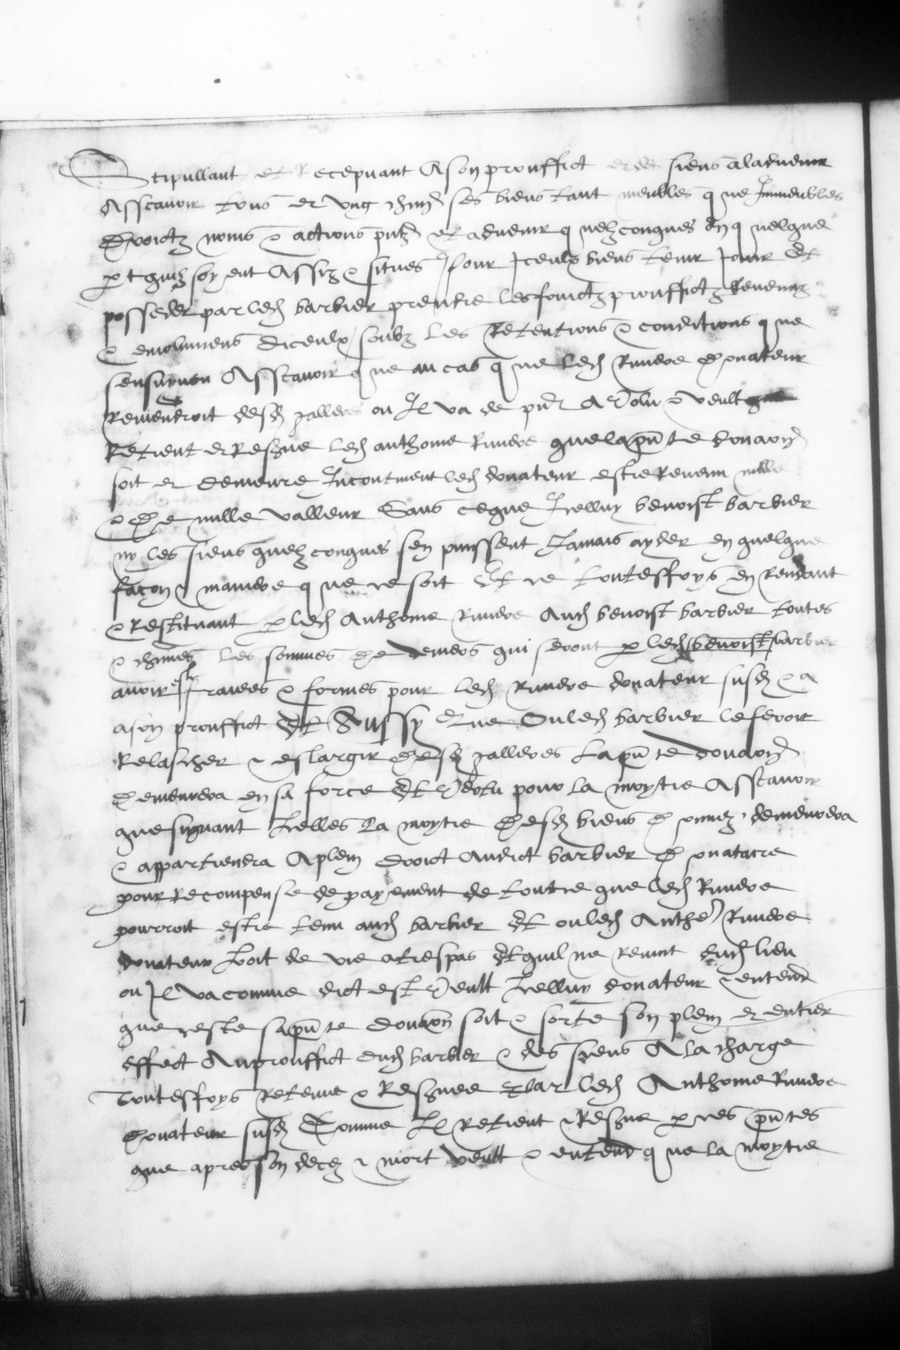 Stipullant et Recepvant A son prouffict et des siens aladvenir
Asscavoir tous et ung chung ses biens tant meubles que Immeubles
Droictz noms & actions pntz et advenir quelzconques En quelque
part quilz soyent Assiz & situes pour Iceulx biens tenir Jouir Et
posseder par led barbier prendre les fruictz prouffictz Revenuz
& emolumens diceulx soubz les Retentions & conditions que
sensuyven Asscavoir que au cas que led Riviere donateur
Reviendroit desd galleres ou Il va de pnt a volu & veult
Retient et Reserve led anthoine Riviere que la pnte donaon
soit et demeure Incontinent led donateur estre Revenu nulle
& de nulle valleur Sans ce que Icelluy benoist barbier
ny les siens quelzconques sen puissent Jamais ayder en quelque
façon & maniere que ce soit Et ce touteffoys en Rendant
& Restituant p led Anthoine Riviere Aud benoist barbier toutes
& chunes les sommes de deniers qui seront p led benoist barbier
avoir frayees & fornies pour led Riviere donateur susd & a
a son prouffict Et Aussy que Ou led barbier le feroit
Relascher & eslargir desd galleres La pnte donaon
demeurera en sa force Et vertu pour la moytie Asscavoir
que suyvant Icelles La moytie desd biens donnez demeurera
& appartiendra A plein droict Audict barbier donataire
pour Recompense de payement de tout ce que led Riviere
pourroit estre tenu aud barbier Et ou led Anthe Riviere
donateur Iroit de vie a trespas Et quil ne revint dud lieu
ou Il va comme dict est veult Icelluy donateur & entend
que ceste sa pnte donaon soit & sorte son plein et entier
effect Au prouffict dud barbier & des syens A la charge
Touteffoys retenue & Reservee par led Anthoine Riviere
donateur susd Comme Il retient & Reserve p ces pntes
que apres son decez & mort veult & entend que la moytie